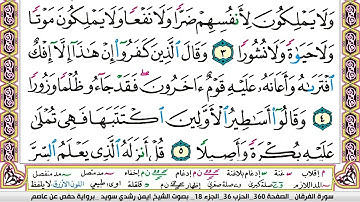 وَلَا يَمْلِكُونَ لِأَنفُسِهِمْ ضَرًّا وَلَا نَفْعًا وَلَا يَمْلِكُونَ مَوْتًا
وَلَا حَيَوٰةً وَلَا نُشُورًا ٣ وَقَالَ ٱلَّذِينَ كَفَرُوٓا۟ إِنْ هَٰذَآ إِلَّآ إِفْكٌ
ٱفْتَرَىٰهُ وَأَعَانَهُۥ عَلَيْهِ قَوْمٌ ءَاخَرُونَ ۖ فَقَدْ جَآءُو ظُلْمًا وَزُورًا
٤ وَقَالُوٓا۟ أَسَٰطِيرُ ٱلْأَوَّلِينَ ٱكْتَتَبَهَا فَهِىَ تُمْلَىٰ
عَلَيْهِ بُكْرَةً وَأَصِيلًا ٥ قُلْ أَنزَلَهُ ٱلَّذِى يَعْلَمُ ٱلسِّرَّ
سورة الفرقان الصفحة 360 الحزب 36 الجزء 18 بصوت الشيخ ايمن رشدي سويد برواية حفص عن عاصم